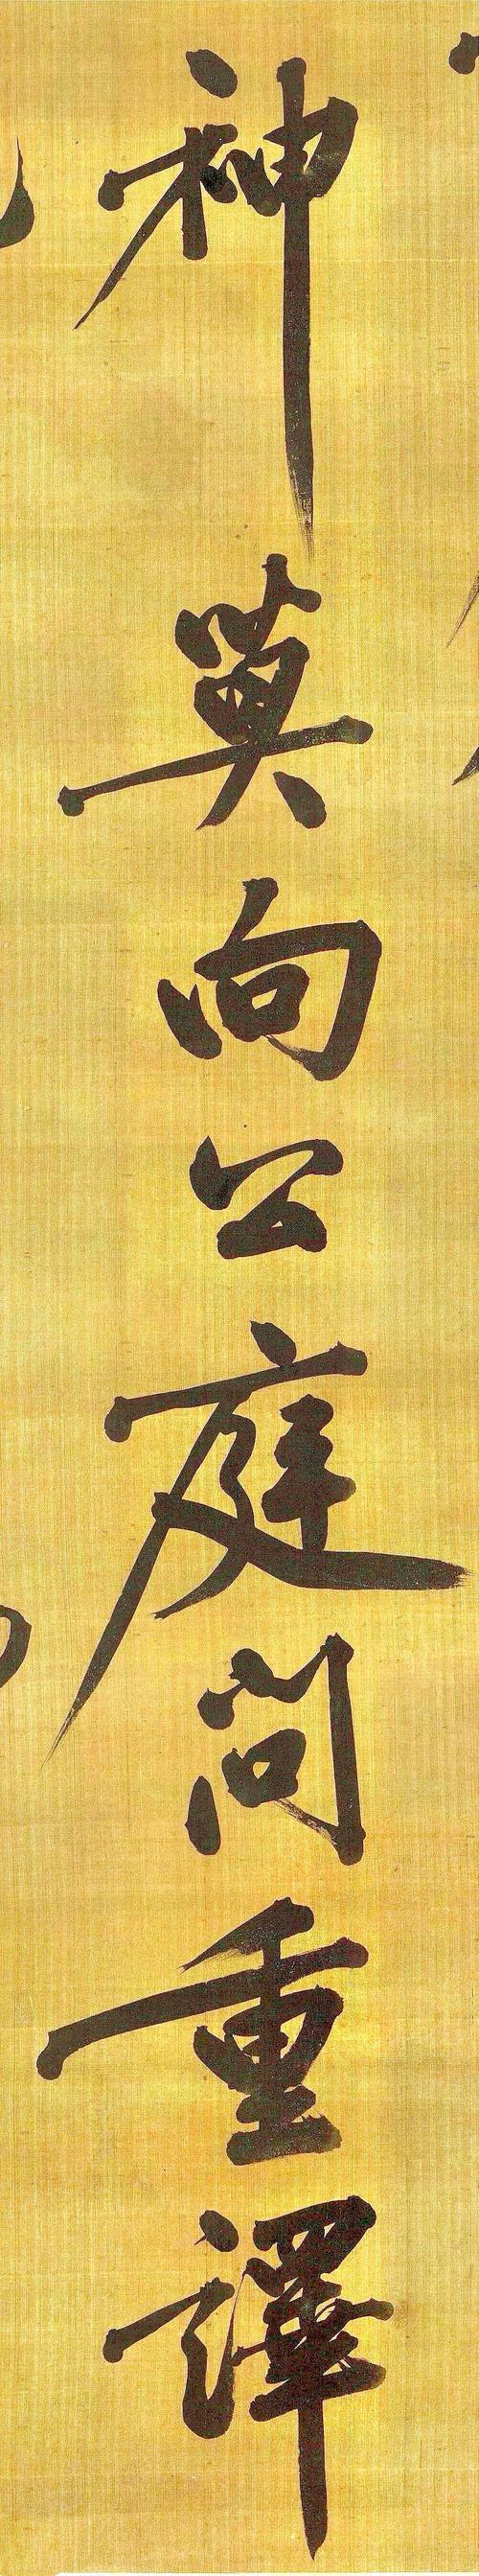 神莫向公庭問重譯